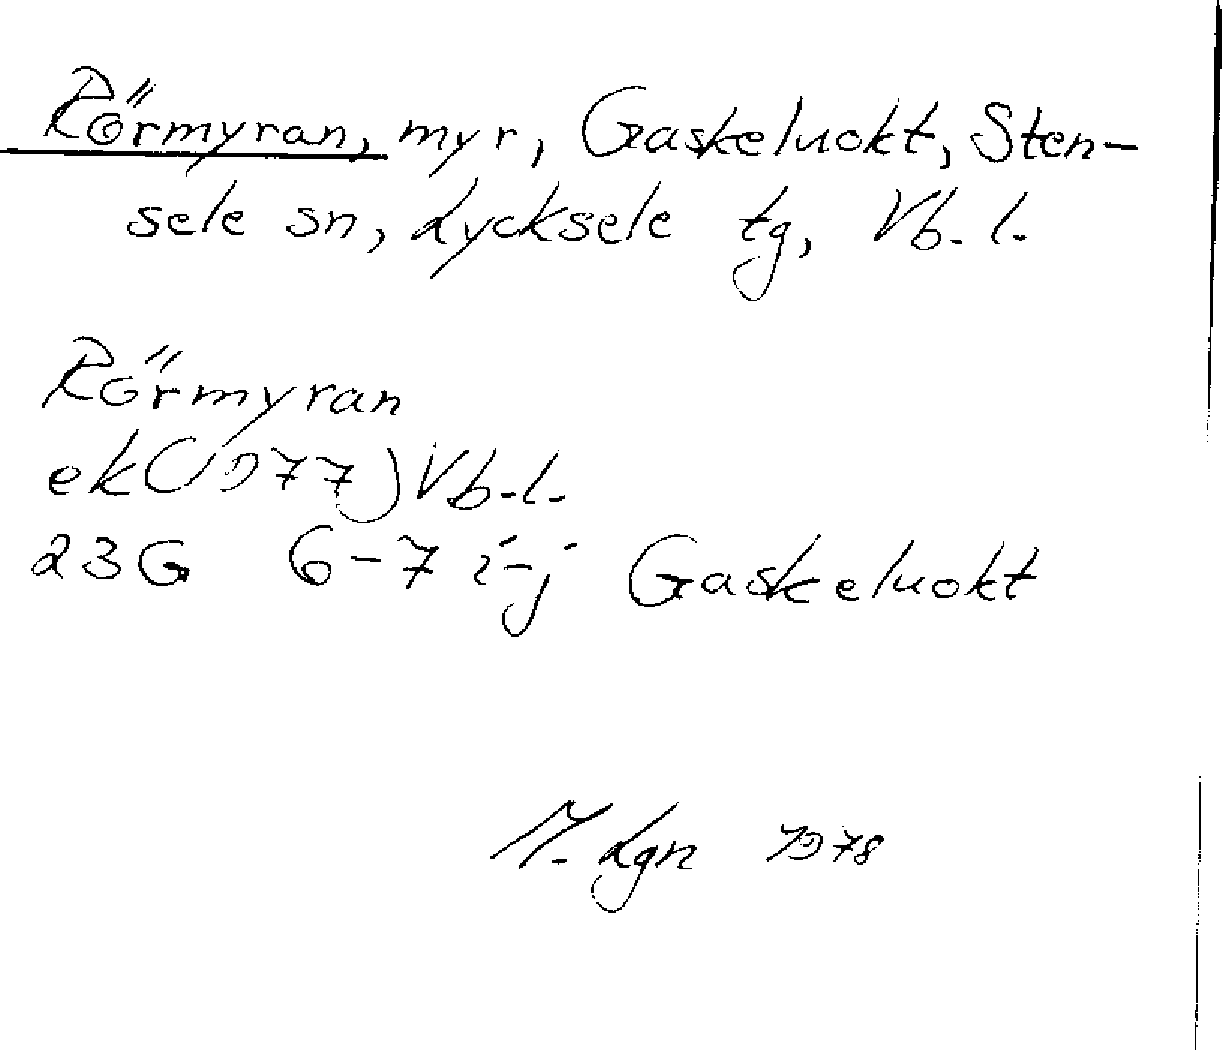 Rörmyran, myr, Gaskeluokt, Sten-
sele sn, Lycksele tg, Vb. l.
Rörmyran
ek(1977) Vb. l.
23G 6-7 i-j Gaskeluokt
M. Lgn 1978